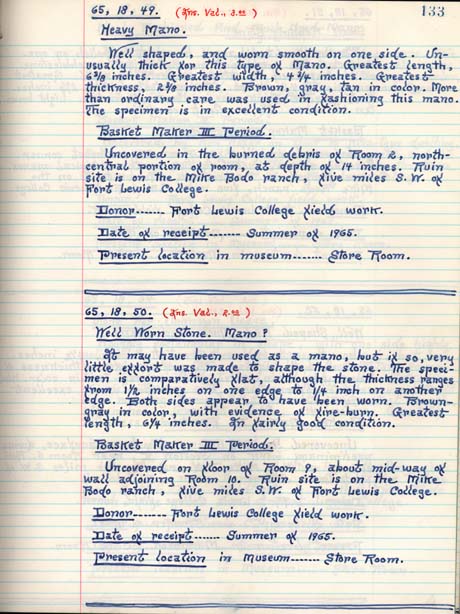 133
65, 18, 49. (Ins. Val., 3.00)
Heavy Mano.
Well shaped, and worn smooth on one side. Un-
usually thick for this type of Mano. Greatest length,
6 3/8 inches. Greatest width, 4 3/4 inches. Greatest
thickness, 2 1/8 inches. Brown, gray, tan in color. More
than ordinary care was used in fashioning this mano.
The specimen is in excellent condition.
Basket Maker III Period.
Uncovered in the burned debris of Room 2, north-
central portion of room, at depth of 14 inches. Ruin
site is on the Mike Bodo ranch, five miles S.W. of
Fort Lewis College.
Donor------- Fort Lewis College field work.
Date of receipt------ Summer of 1965.
Present location in museum------- Store Room.
65, 18, 50. (Ins. Val., 2.00)
Well Worn Stone. Mano?
It may have been used as a mano, but if so, very
little effort was made to shape the stone. The speci-
men is comparatively flat, although the thickness ranges
from 1 1/2 inches on one edge to 1/4 inch on another
edge. Both sides appear to have been worn. Brown-
gray in color, with evidence of fire-burn. Greatest
length, 6 1/4 inches. In fairly good condition.
Basket Maker III Period.
Uncovered on floor of Room 9, about mid-way of
wall adjoining Room 10. Ruin site is on the Mike
Bodo ranch, five miles S.W. of Fort Lewis College.
Donor------- Fort Lewis College field work.
Date of receipt------ Summer of 1965.
Present location in Museum------ Store Room.